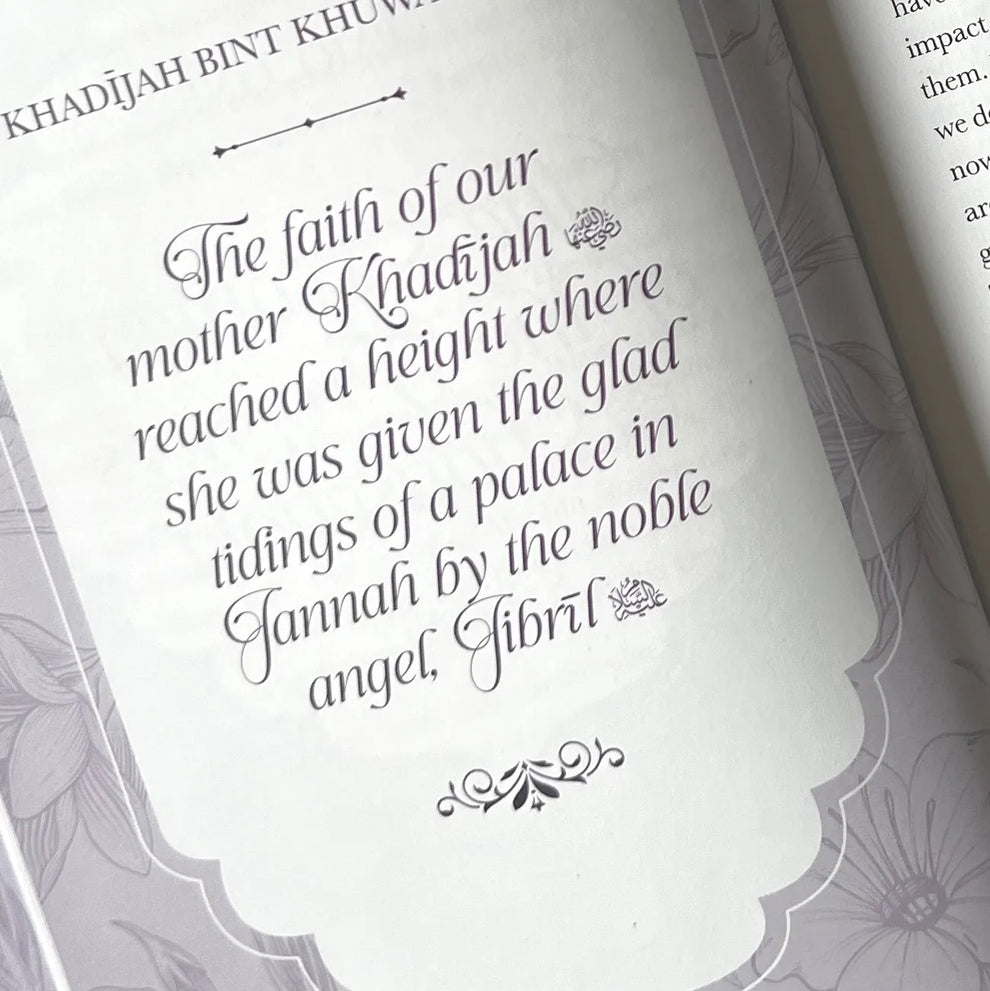 KHADĪJAH BINT
The faith of our
mother Khadījah رضي الله عنها
reached a height where
she was given the glad
tidings of a palace in
Jannah by the noble
angel, Jibrīl عليه السلام
impact
them.
we